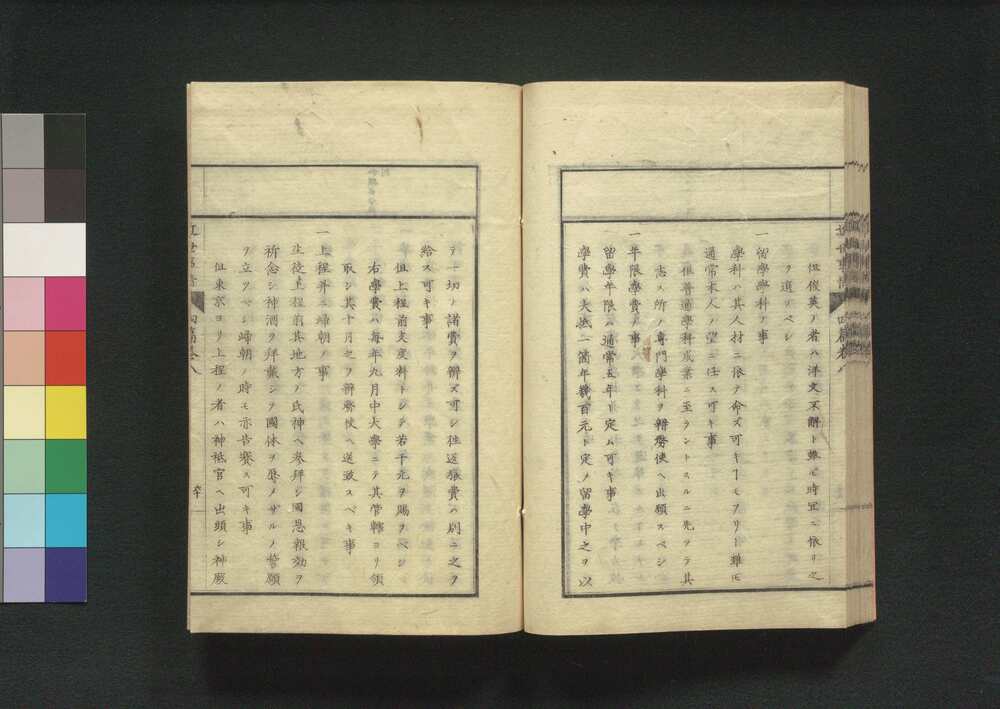 但俊英ノ者ハ洋文不解ト雖𪜈時宜ニ依リ之
ヲ遣ルベシ
一留學學科ヲ事
學科ハ其人材ニ依テ命ズ可キヿモアリト雖𪜈
通常本人ノ望ニ任ス可キ事
但普通學科成業ニ至ラントスルニ先ヲテ其
志ス所ノ專門學科ヲ辨務使ヘ出願スベシ
一年限學費ノ事
留學年限ハ通常五年ト定ム可キ事
學費ハ大抵一箇年幾百元ト定メ留學中之ヲ以
テ一切ノ諸費ヲ辨ズ可シ往返旅費ハ別ニ之ヲ
給ス可キ事
但上程前支度料トシテ若干元ヲ賜ヲベシ
右學費ハ毎年九月中大學ニテ其管轄ヨリ領
取シ其十月之ヲ辨務使ヘ送致スベキ事
一上程并ニ歸朝ノ事
生徒上程前其地方ノ氏神ヘ參拜シ國恩報効ヲ
祈念シ神酒ヲ拜戴シテ國体ヲ辱メザルノ誓願
ヲ立ツベシ歸朝ノ時モ亦告賽ス可キ事
但東京ヨリ上程ノ者ハ神祗官ヘ出頭シ神殿